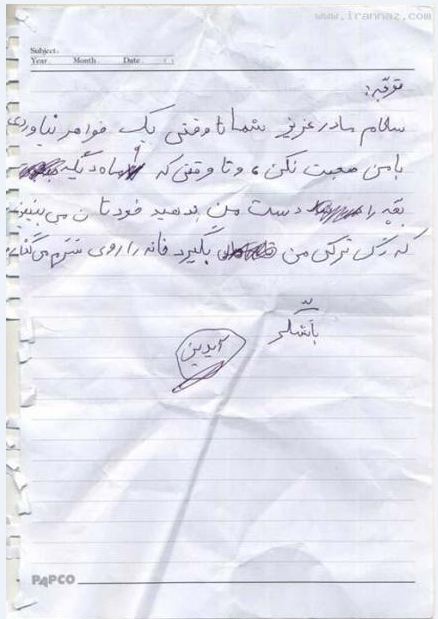 www.irannaz.com
Subject:
Year Month Date
توجه:
سلام مادر عزیز شما تا وقتی یک خواهر نیاوری
با من صحبت نکن، و تا وقتی که ۹ ماه دیگه
بچه را دست من بدهید خودتان می بینید
که رگ ترکی من بگیرد خانه را روی سَرَم می گذارم
باتشکر
آیدین
PAPCO